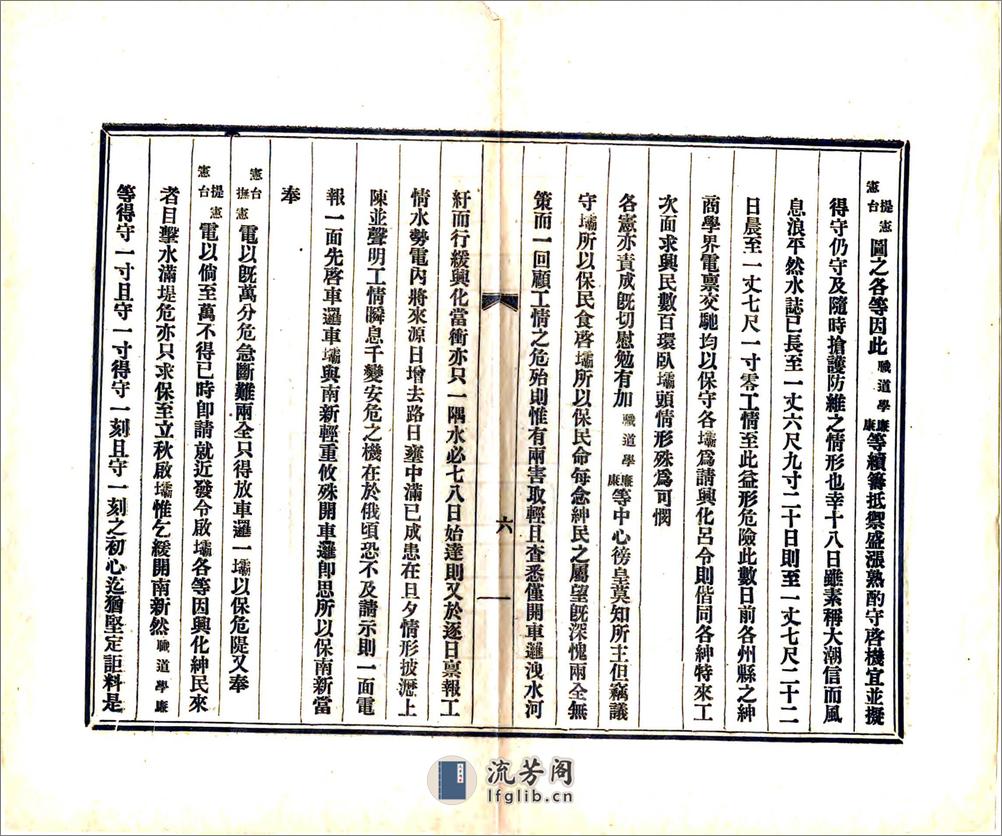 憲台提憲圖之各等因此職道學廉康等續籌抵禦盛漲熟酌守啓機宜並擬
得守仍守及隨時搶護防維之情形也幸十八日雖素稱大潮信而風
息浪平然水誌已長至一丈六尺九寸二十日則至一丈七尺二十二
日晨至一丈七尺一寸零工情至此益形危險此數日前各州縣之紳
商學界電稟交馳均以保守各壩爲請興化呂令則偕同各紳特來工
次面求興民數百環臥壩頭情形殊爲可憫
各憲亦責成既切慰勉有加職道學廉康等中心徬皇莫知所主但竊議
守壩所以保民食啓壩所以保民命每念紳民之屬望既深愧兩全無
策而一回顧工情之危殆則惟有兩害取輕且查悉僅開車邏洩水河
六
紆而行緩興化當衝亦只一隅水必七八日始達則又於逐日稟報工
情水勢電內將來源日增去路日壅中滿已成患在旦夕情形披瀝上
陳並聲明工情瞬息千變安危之機在於俄頃恐不及請示則一面電
報一面先啓車邏車壩與南新輕重攸殊開車邏卽思所以保南新當
奉
憲台撫憲電以既萬分危急斷難兩全只得放車邏一壩以保危隄又奉
憲台提憲電以倘至萬不得已時卽請就近發令啟壩各等因興化紳民來
者目擊水滿堤危亦只求保至立秋啟壩惟乞緩開南新然職道學廉
等得守一寸且守一寸得守一刻且守一刻之初心迄猶堅定詎料是
流芳阁
lfglib.cn